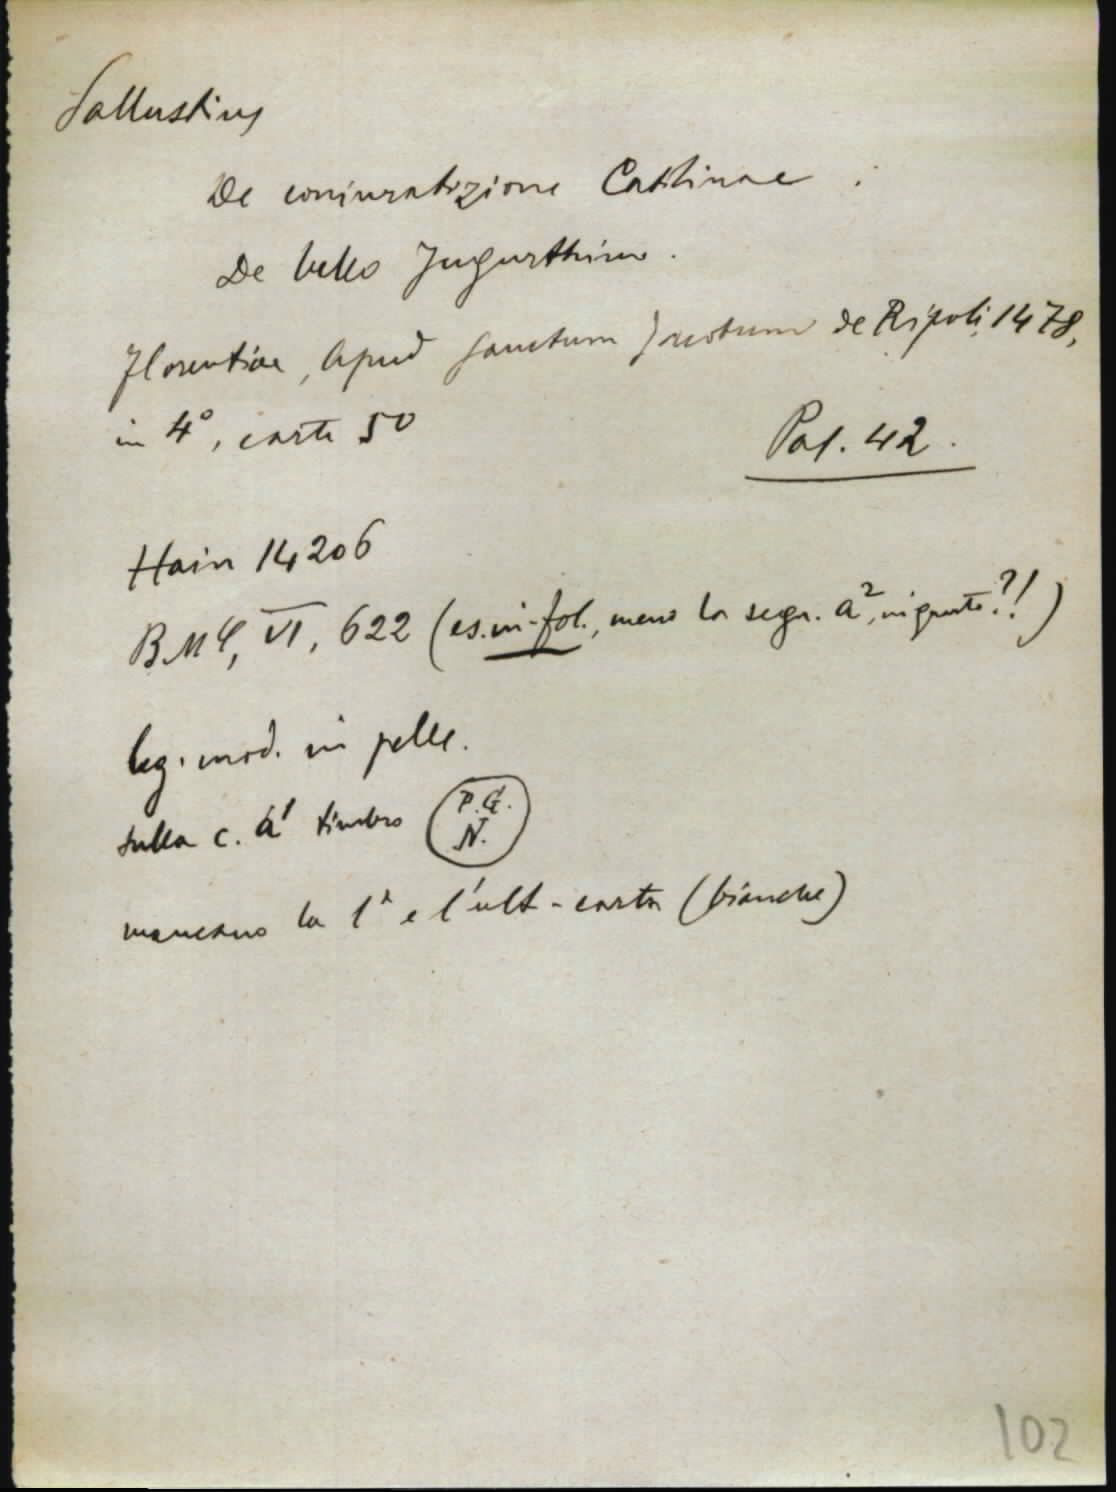 Sallustius
De coniuratizione Catilinae.
De bello Jugurthino.
Florentiae, Apud Sanctum Jacobum de Ripoli, 1478,
in 4°, carte 50
Pal. 42.
Hain 14206
BMC, VI, 622 (es. in-fol., meno la segn. a², in quarto?!)
leg. mod. in pelle.
sulla c. a¹ timbro P.G.
N.
mancano la 1ª e l'ult. carta (bianche)
102